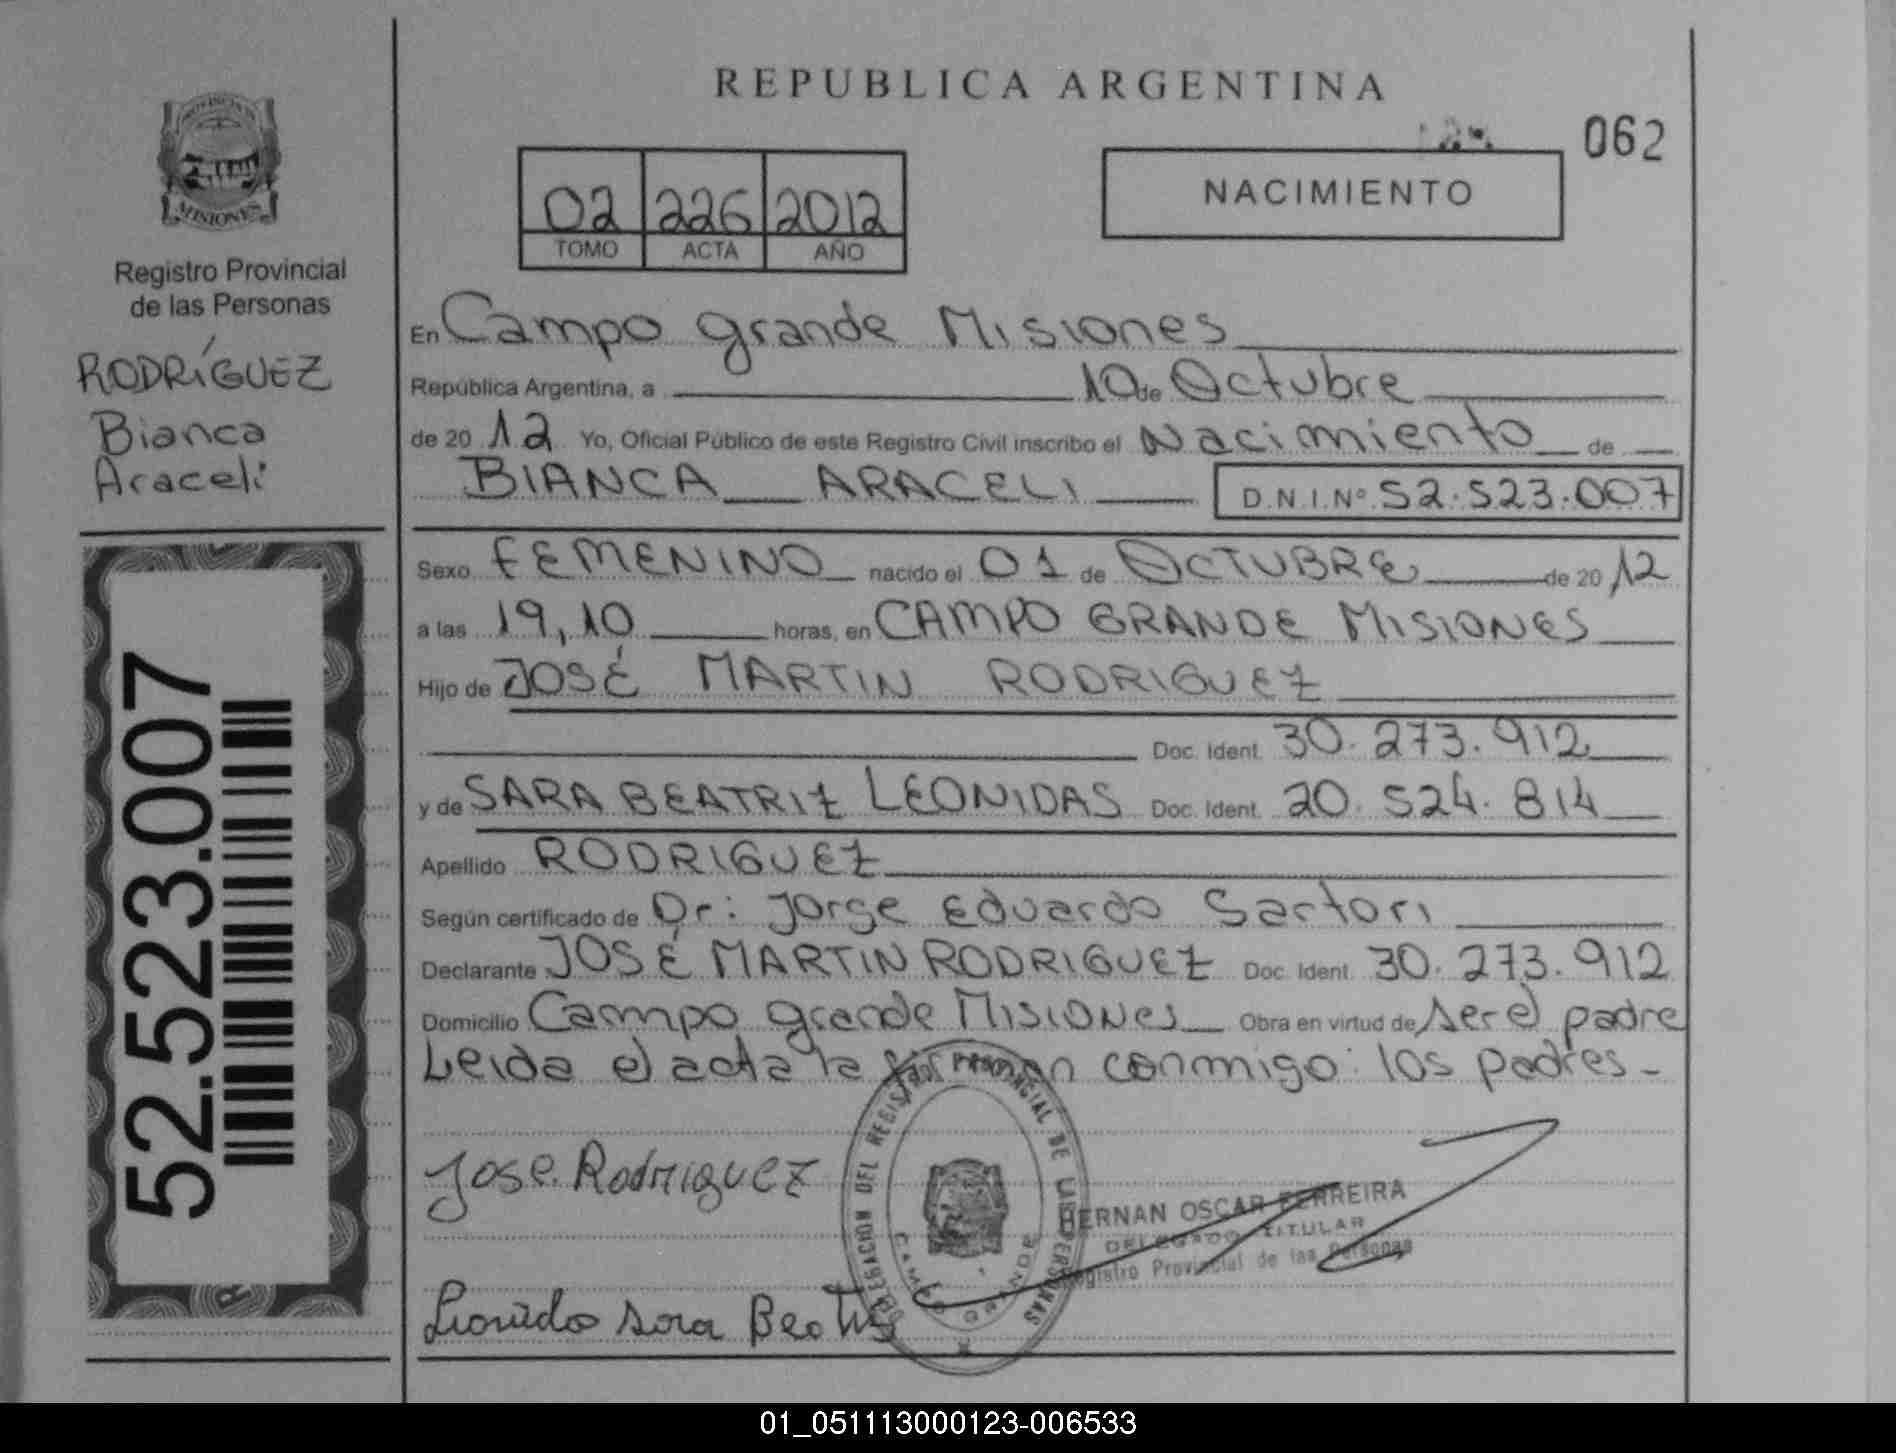 REPUBLICA ARGENTINA
062
PROVINCIA
MISIONES
Registro Provincial
de las Personas
RODRÍGUEZ
Bianca
Araceli
52.523.007
02 226 2012
TOMO ACTA AÑO
NACIMIENTO
En Campo grande Misiones
República Argentina, a 10 de Octubre
de 20 12 Yo, Oficial Público de este Registro Civil inscribo el Nacimiento de
BIANCA ARACELI D.N.I.Nº 52.523.007
Sexo FEMENINO nacido el 01 de OCTUBRE de 20 12
a las 19,10 horas, en CAMPO GRANDE MISIONES
Hijo de JOSÉ MARTIN RODRIGUEZ
Doc. Ident. 30.273.912
y de SARA BEATRIZ LEONIDAS Doc. Ident. 20.524.814
Apellido RODRIGUEZ
Según certificado de Dr: Jorge Eduardo Sartori
Declarante JOSÉ MARTIN RODRIGUEZ Doc. Ident. 30.273.912
Domicilio Campo grande Misiones Obra en virtud de ser el padre
Leida el acta la firman conmigo: los padres-
Jose Rodriguez
DELEGACION DEL REGISTRO PROVINCIAL DE LAS PERSONAS
CAMPO GRANDE
HERNAN OSCAR FERREIRA
DELEGADO TITULAR
Registro Provincial de las Personas
Sara Beatriz
01_051113000123-006533